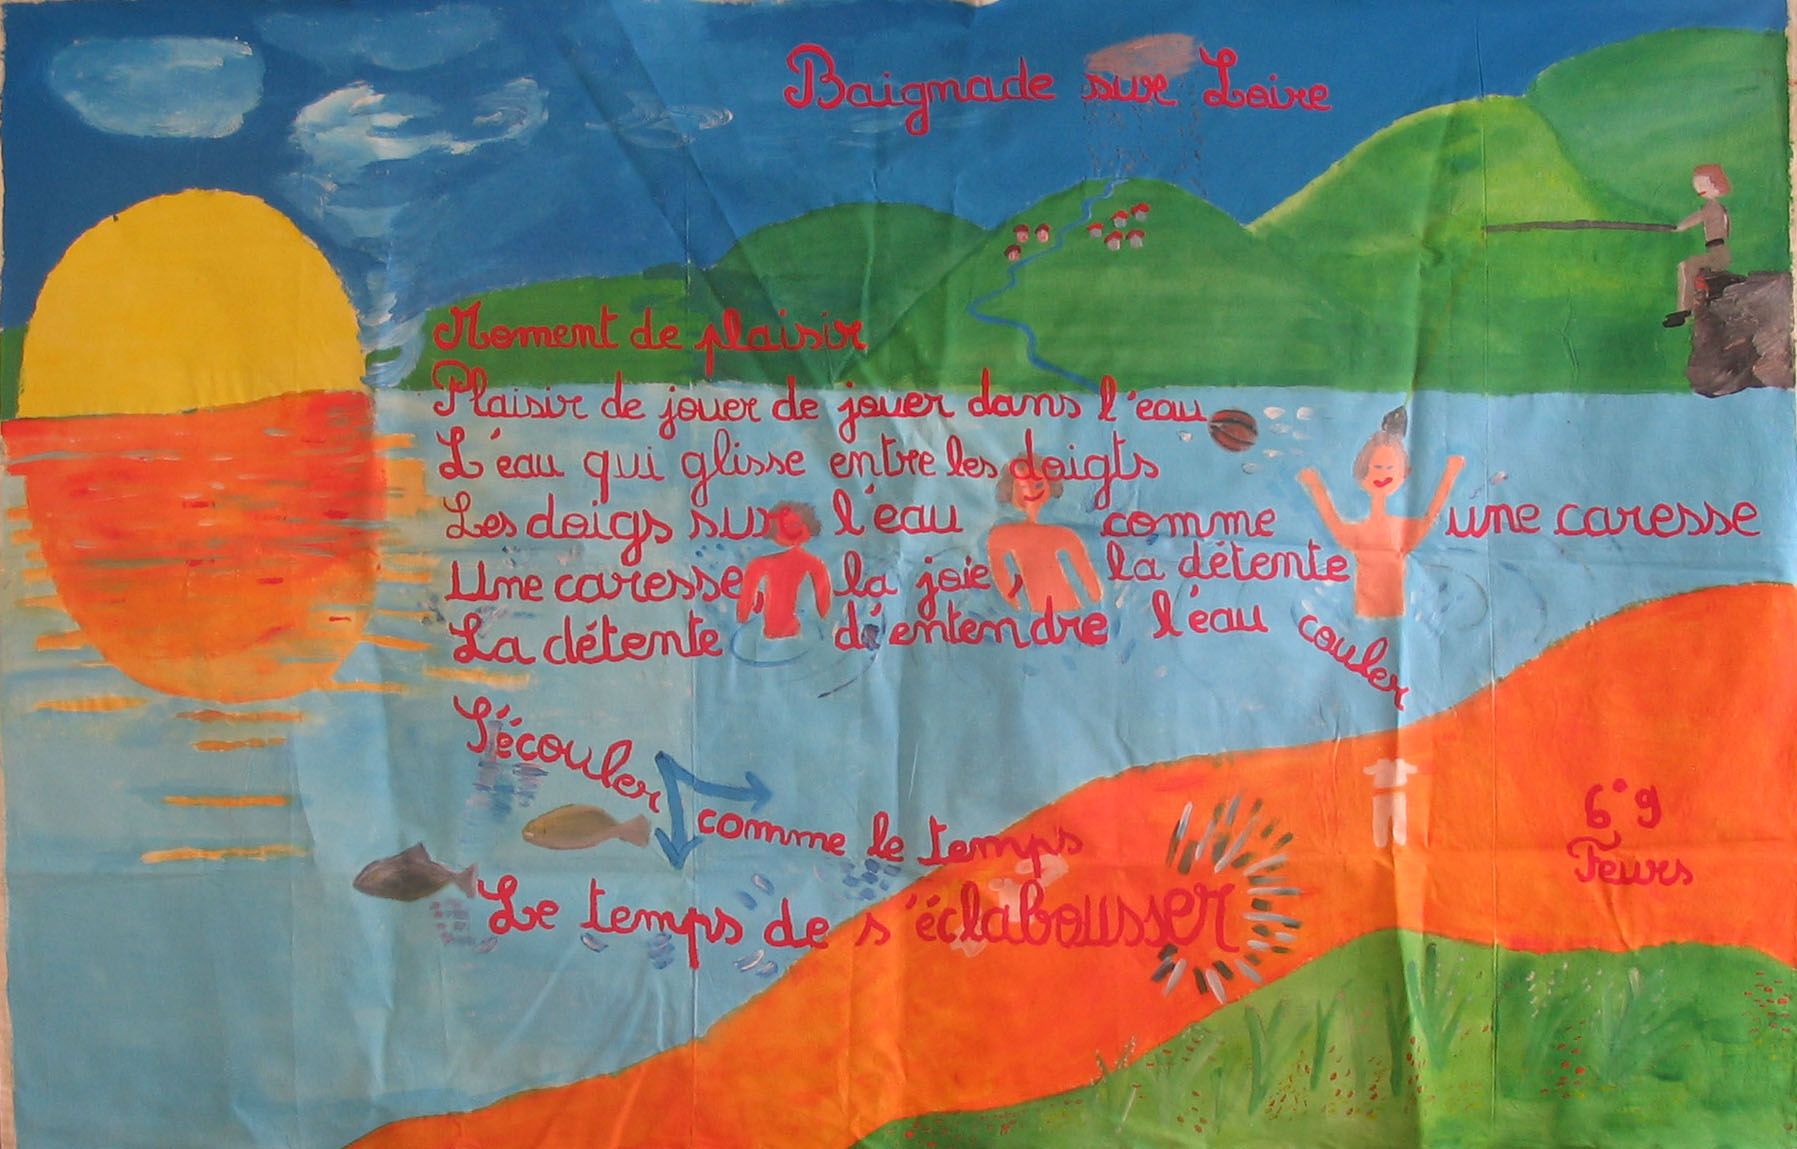 Baignade sur Loire
Moment de plaisir
Plaisir de jouer de jouer dans l'eau
L'eau qui glisse entre les doigts
Les doigs sur l'eau comme une caresse
Une caresse, la joie, la détente
La détente d'entendre l'eau couler
S'écouler comme le temps
Le temps de s'éclabousser
6°9
Feurs